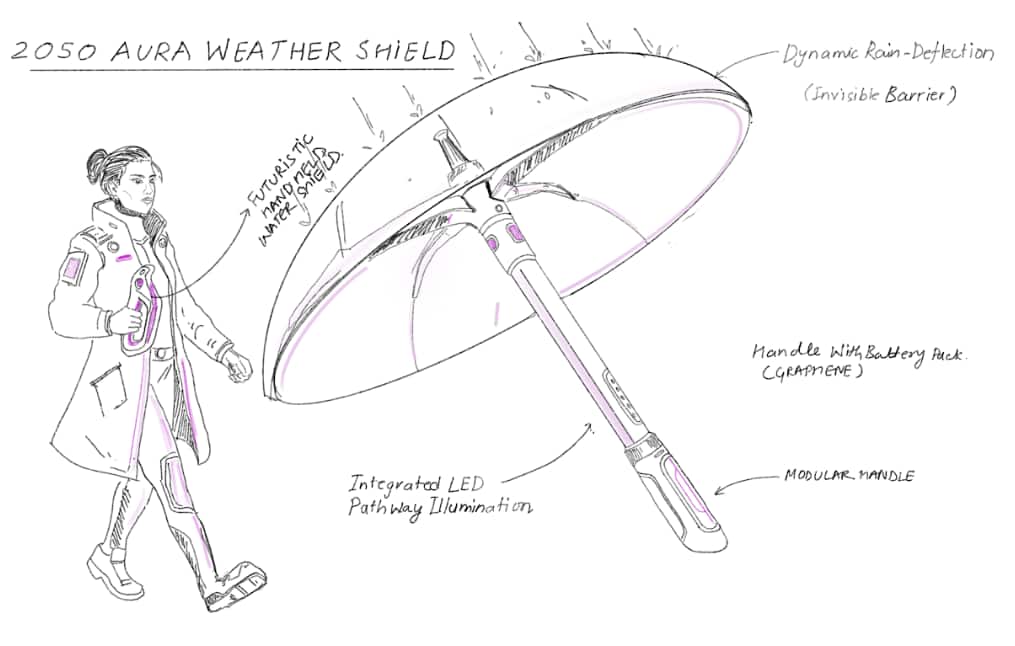 2050 AURA WEATHER SHIELD
Dynamic Rain-Deflection
(Invisible Barrier)
FUTURISTIC
HANDHELD
WATER SHIELD.
Handle With Battery Pack.
(GRAPHENE)
Integrated LED
Pathway Illumination
MODULAR HANDLE